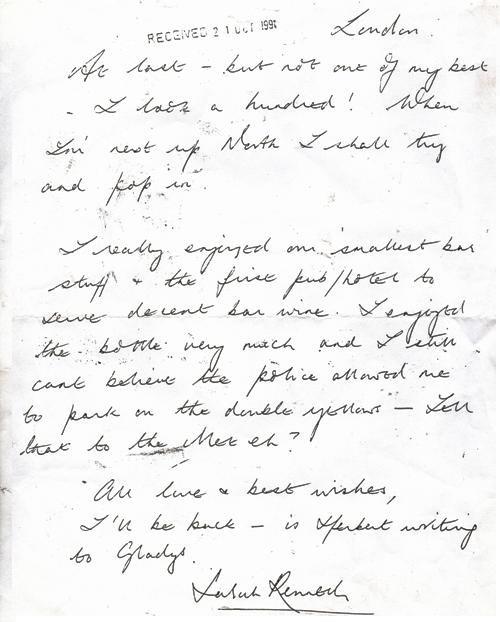 RECEIVED 21 OCT 1991
London.
At last - but not one of my best
- I look a hundred! When
I'm next up North I shall try
and pop in.
I really enjoyed our 'smallest bar'
stuff & the first pub/hotel to
serve decent bar wine. I enjoyed
the bottle very much and I still
cant believe the police allowed me
to park on the double yellows - Tell
that to the Met eh?
All love & best wishes,
I'll be back - is Herbert writing
to Gladys.